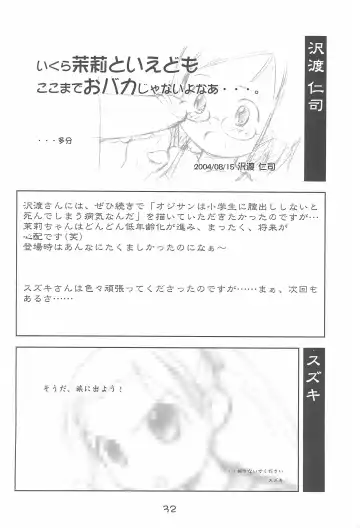 沢渡 仁司
いくら茉莉といえども
ここまでおバカじゃないよなあ・・・。
・・・多分
2004/08/15 沢渡 仁司
沢渡さんには、ぜひ続きで「オジサンは小学生に膣出ししないと
死んでしまう病気なんだ」を描いていただきたかったのですが…
茉莉ちゃんはどんどん低年齢化が進み、まったく、将来が
心配です(笑)
登場時はあんなにたくましかったのになぁ〜
スズキさんは色々頑張ってくださったのですが……まぁ、次回も
あるさ……
スズキ
そうだ、旅に出よう!
スズキ
32